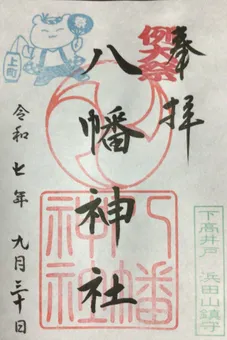 奉拝
例大祭
八幡神社
八幡神社
令和七年 九月三十日
下高井戸 浜田山鎮守
上町